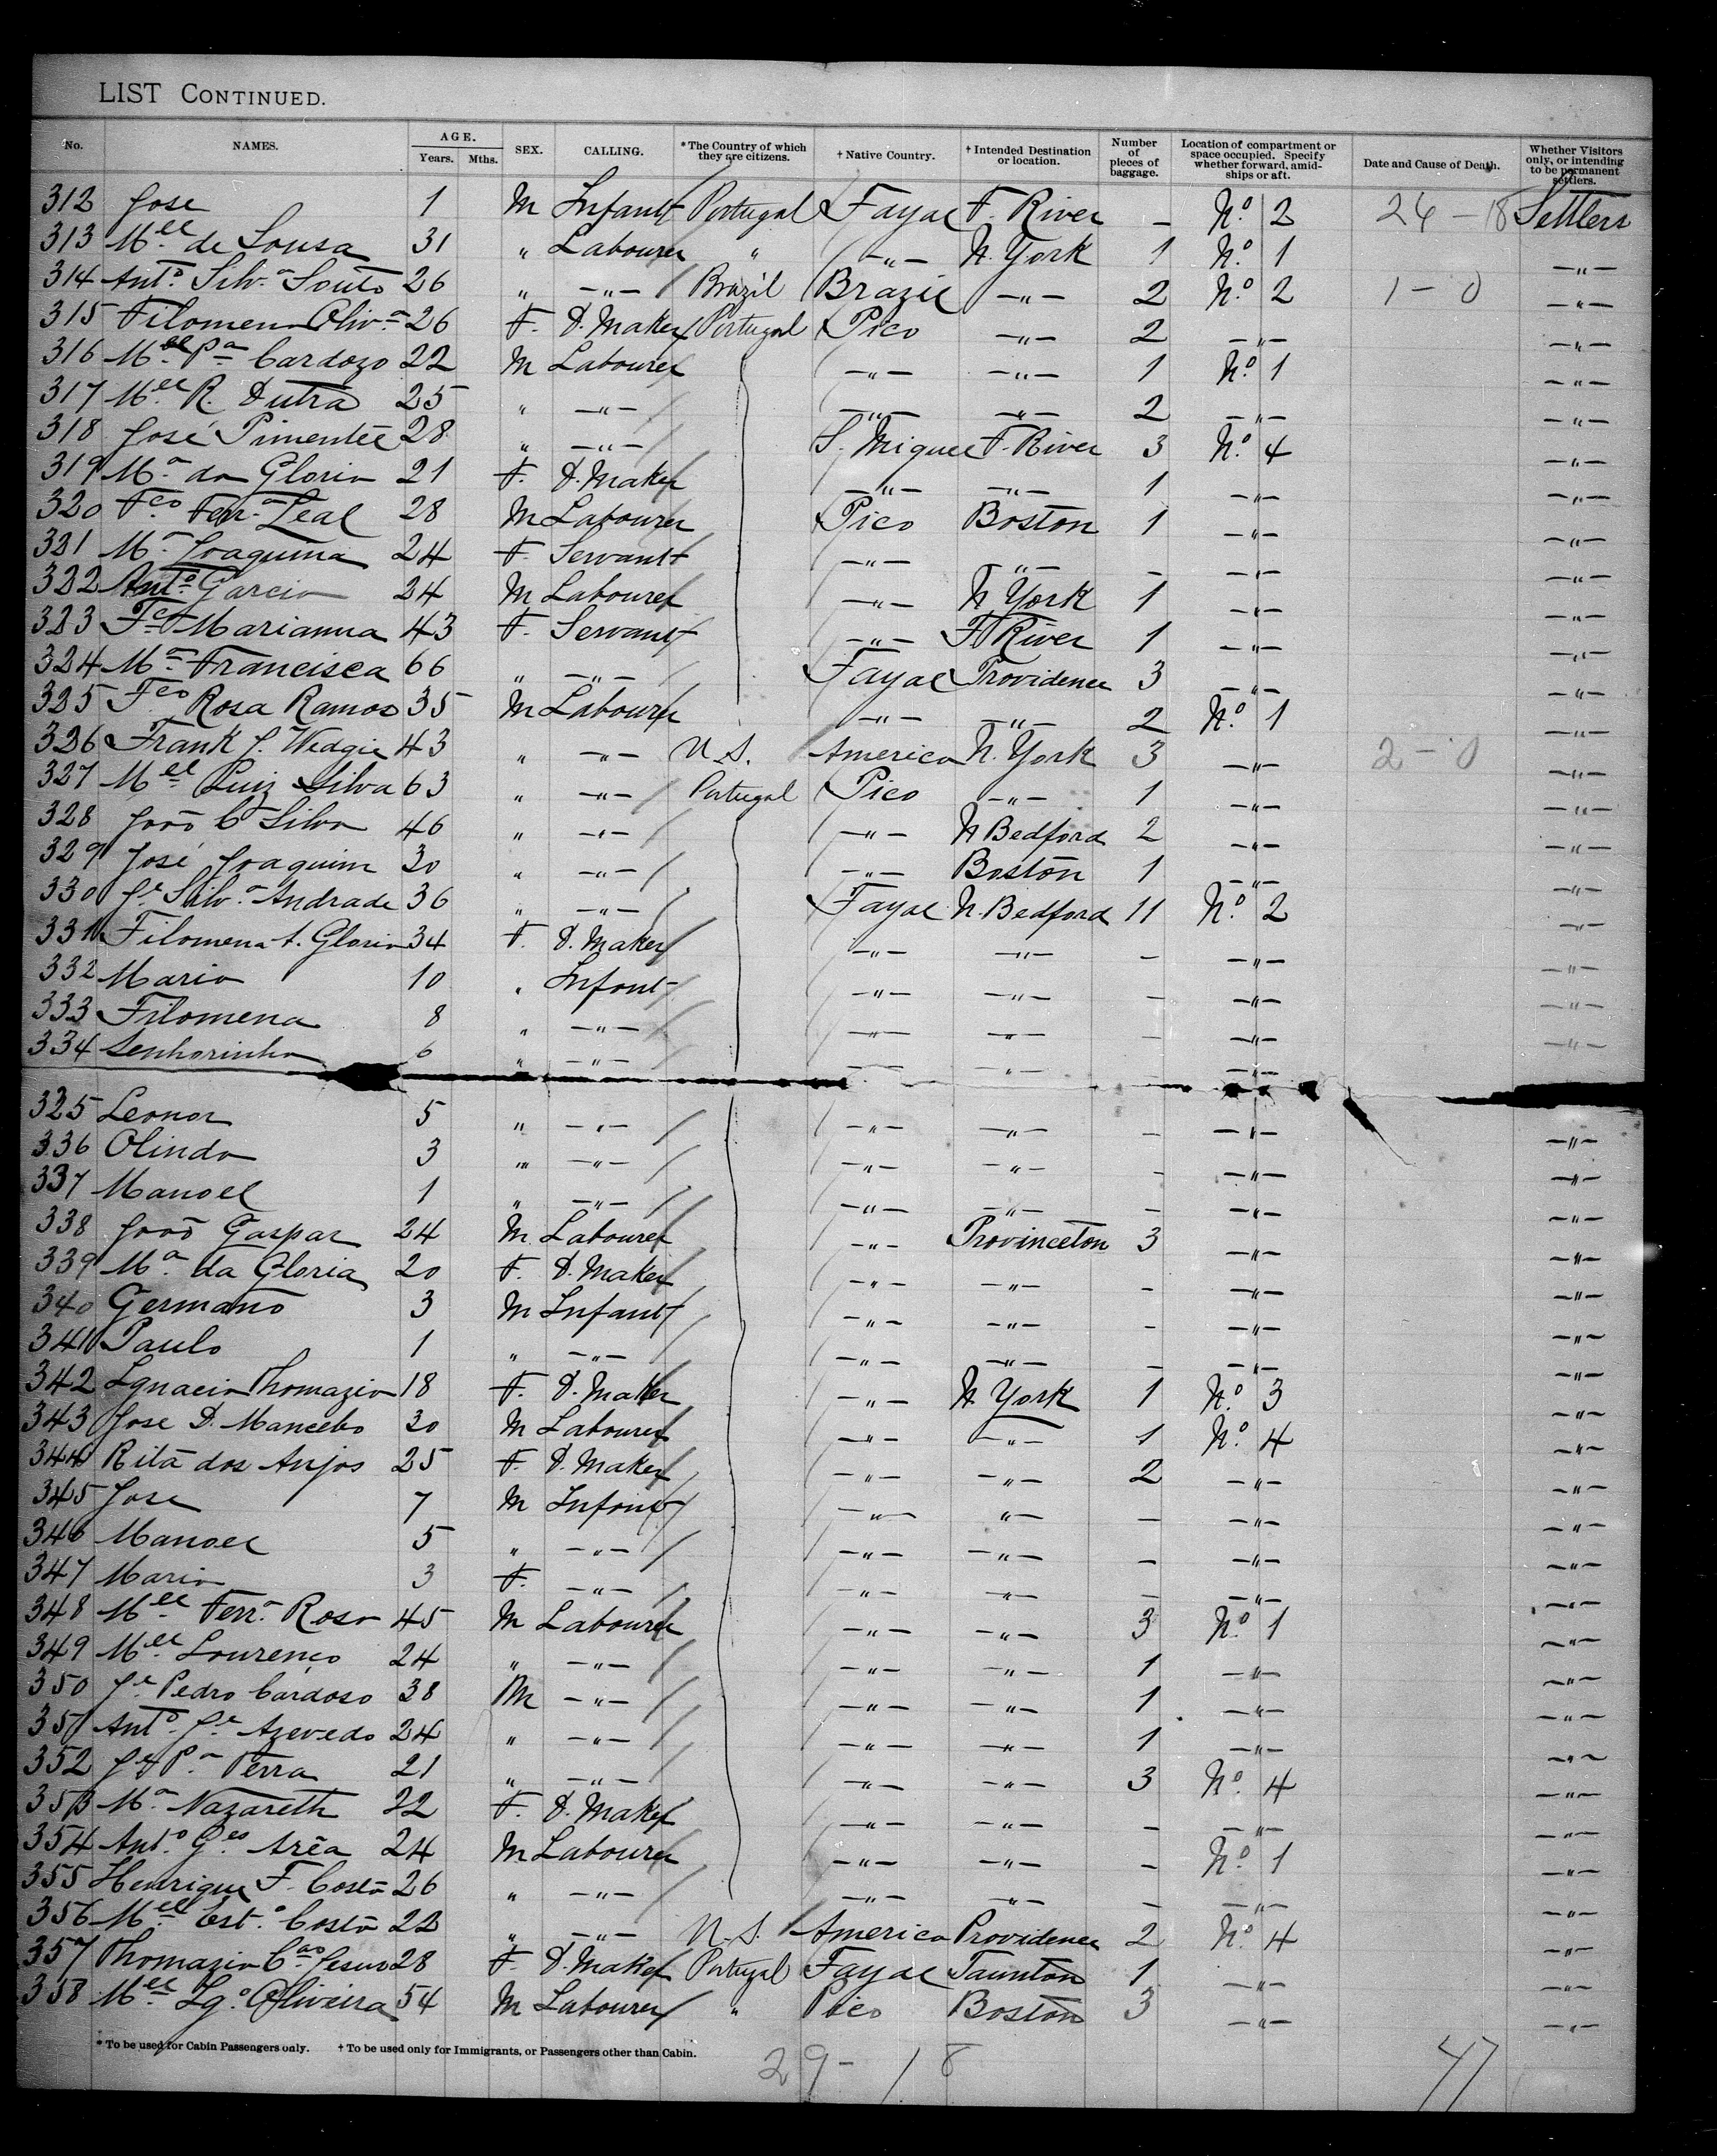 LIST CONTINUED.
No. NAMES. AGE. Years. Mths. SEX. CALLING. *The Country of which they are citizens. †Native Country. †Intended Destination or location. Number of pieces of baggage. Location of compartment or space occupied. Specify whether forward, amidships or aft. Date and Cause of Death. Whether Visitors only, or intending to be permanent settlers.
312 Jose 1 M Infant Portugal Fayal F. River — No. 2 24 - 18 Settlers
313 Mel de Sousa 31 " Labourer " —"— N. York 1 No. 1 —"—
314 Anto. Silva Souto 26 " —"— Brazil Brazil —"— 2 No. 2 1 - 0 —"—
315 Filomena Oliva 26 F. D. Maker Portugal Pico —"— 2 —"— —"—
316 Mel Pa Cardozo 22 M Labourer —"— —"— 1 No. 1 —"—
317 Mel R. Dutra 25 " —"— —"— —"— 2 —"— —"—
318 José Pimentel 28 " —"— S. Miguel F. River 3 No. 4 —"—
319 Ma da Gloria 21 F. D. Maker —"— —"— 1 —"— —"—
320 Fco Ferra Leal 28 M Labourer Pico Boston 1 —"— —"—
321 Ma Joaquina 24 F. Servant —"— —"— — —"— —"—
322 Anto Garcia 24 M Labourer —"— N York 1 —"— —"—
323 Fca Marianna 43 F. Servant —"— F River 1 —"— —"—
324 Ma Francisca 66 " —"— Fayal Providence 3 —"— —"—
325 Fco Rosa Ramos 35 M Labourer —"— —"— 2 No. 1 —"—
326 Frank J. Wedgie 43 " —"— U.S. America N. York 3 —"— 2 - 0 —"—
327 Mel Luiz Silva 63 " —"— Portugal Pico —"— 1 —"— —"—
328 João C Silva 46 " —"— —"— N Bedford 2 —"— —"—
329 José Joaquim 30 " —"— —"— Boston 1 —"— —"—
330 Je Silva Andrade 36 " —"— Fayal N. Bedford 11 No. 2 —"—
331 Filomena t. Gloria 34 F. D. Maker —"— —"— — —"— —"—
332 Maria 10 " Infant —"— —"— — —"— —"—
333 Filomena 8 " —"— —"— —"— — —"— —"—
334 Senhorinha 6 " —"— —"— —"— — —"—
325 Leonor 5 " —"— —"— —"— — —"— —"—
336 Olinda 3 " —"— —"— —"— — —"— —"—
337 Manoel 1 " —"— —"— —"— — —"— —"—
338 João Gaspar 24 M Labourer —"— Provinceton 3 —"— —"—
339 Ma da Gloria 20 F. D. Maker —"— —"— — —"— —"—
340 Germano 3 M Infant —"— —"— — —"— —"—
341 Paulo 1 " —"— —"— —"— — —"— —"—
342 Ignacia Thomazia 18 F. D. Maker —"— N York 1 No. 3 —"—
343 Jose D. Mancebo 30 M Labourer —"— —"— 1 No. 4 —"—
344 Rita dos Anjos 25 F. D. Maker —"— —"— 2 —"— —"—
345 Jose 7 M Infant —"— —"— — —"— —"—
346 Manoel 5 " —"— —"— —"— — —"— —"—
347 Maria 3 F. —"— —"— —"— — —"— —"—
348 Mel Ferra Rosa 45 M Labourer —"— —"— 3 No. 1 —"—
349 Mel Lourenço 24 " —"— —"— —"— 1 —"— —"—
350 Je Pedro Cardoso 38 M —"— —"— —"— 1 —"— —"—
351 Anto Je Azevedo 24 " —"— —"— —"— 1 —"— —"—
352 Je Pa Terra 21 " —"— —"— —"— 3 No. 4 —"—
353 Ma Nazareth 22 F. D. Maker —"— —"— — —"— —"—
354 Anto Ges Arêa 24 M Labourer —"— —"— — No. 1 —"—
355 Henrique F. Costa 26 " —"— —"— —"— — —"— —"—
356 Mel Esto Costa 22 " —"— U.S. America Providence 2 No. 4 —"—
357 Thomazia Cao Jesus 28 F. D. Maker Portugal Fayal Taunton 1 —"— —"—
358 Mel Igo Oliveira 54 M Labourer " Pico Boston 3 —"— —"—
* To be used for Cabin Passengers only. † To be used only for Immigrants, or Passengers other than Cabin.
29 - 18 47